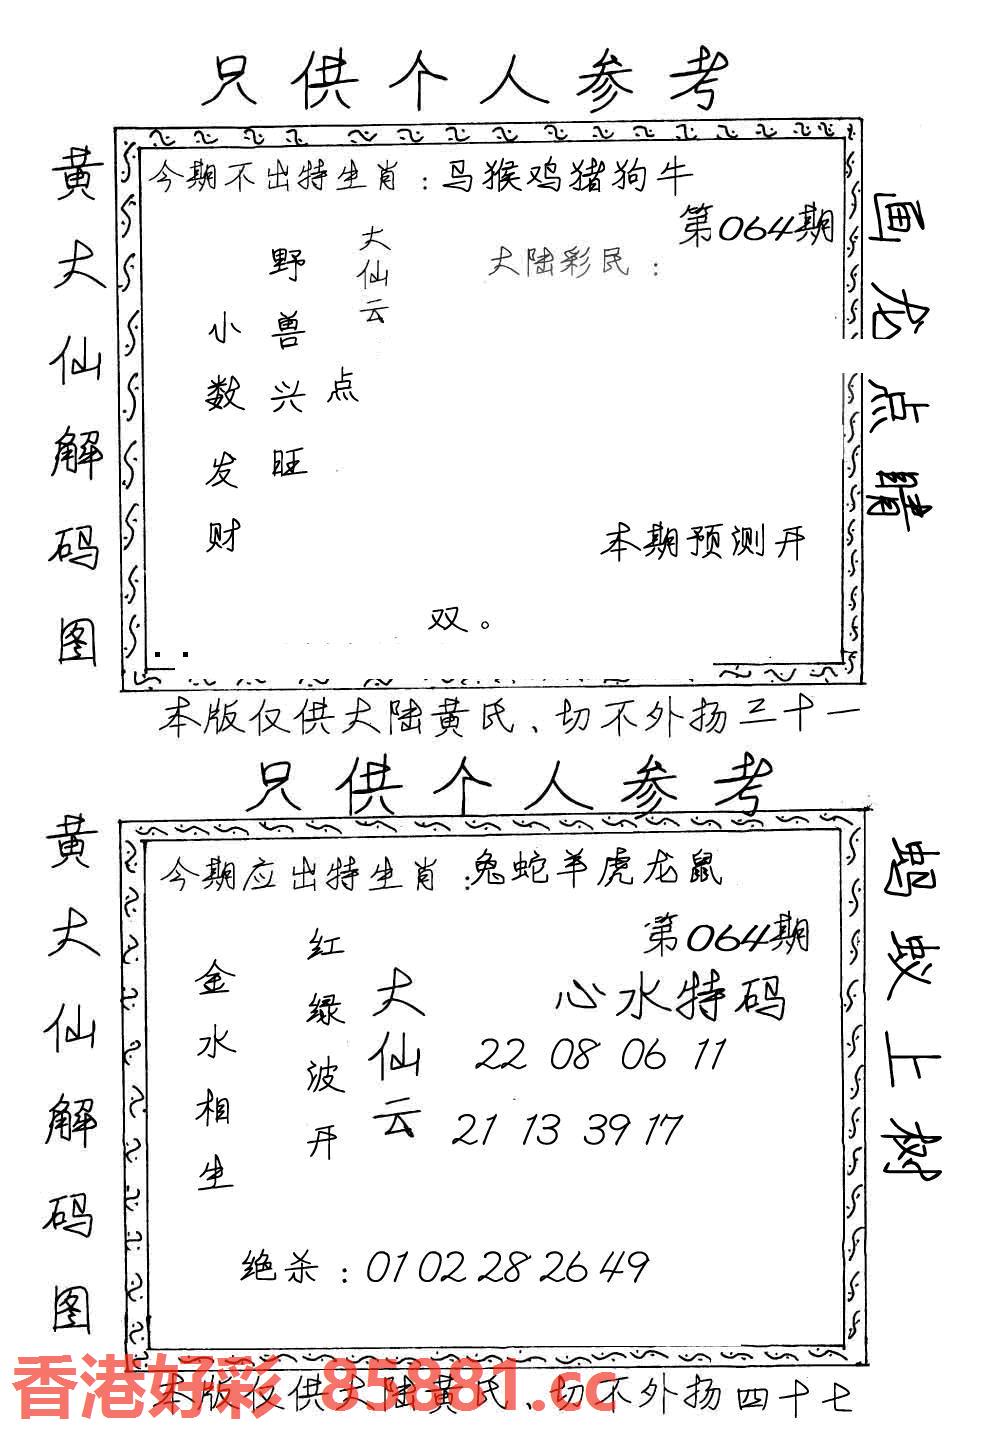 只供个人参考
黄大仙解码图
今期不出特生肖：马猴鸡猪狗牛
第064期
画龙点睛
大仙云
大陆彩民：
野兽兴旺
小数发财
点
本期预测开
双。
本版仅供大陆黄氏、切不外扬三十一
只供个人参考
黄大仙解码图
今期应出特生肖：兔蛇羊虎龙鼠
第064期
蚂蚁上树
红绿波开
金水相生
大仙云
心水特码
22 08 06 11
21 13 39 17
绝杀：01 02 28 26 49
香港好彩 85881.cc
本版仅供大陆黄氏、切不外扬四十七